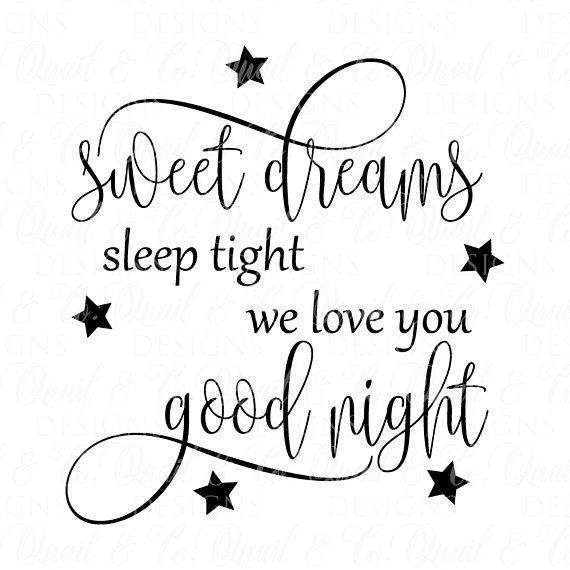 sweet dreams
sleep tight
we love you
good night
Quail & Co.
DESIGNS